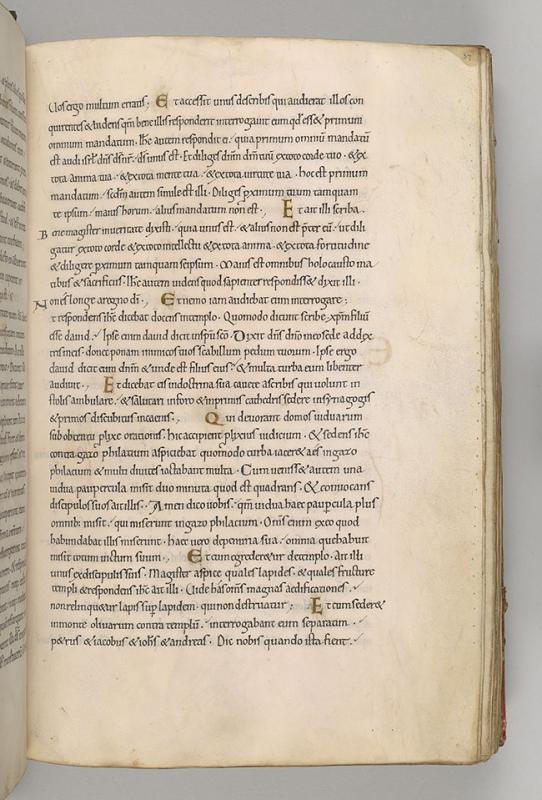 Uos ergo multum erratis; Et accessit unus de scribis qui audierat illos con
quirentes & uidens qm̄ bene illis responderit interrogauit eum qđ ess& primum
omnium mandatum. Ihc̄ autem respondit ei. quia primum omniū mandatū
est audi isrł. dn̄s ds̄ nr̄. ds̄ unus est. Et diliges dn̄m dm̄ tuū ex toto corde tuo. & ex
tota anima tua. & ex tota mente tua. & ex tota uirtute tua. Hoc est primum
mandatum. Scd̄m autem simile est illi. Diliges proximum tuum tamquam
te ipsum. maius horum. aliud mandatum non est. Et ait illi scriba.
Bene magister in ueritate dixisti. quia unus est. & alius non est p̄ter eū. ut dili
gatur ex toto corde & ex toto intellectu & ex tota anima. & ex tota fortitudine
& diligere proximum tamquam se ipsum. Maius est omnibus holocausto ma
tibus & sacrificiis. Ihc̄ autem uidens quod sapienter respondiss& dixit illi.
Non es longe a regno dī. Et nemo iam audebat eum interrogare;
Et respondens ihc̄ dicebat docens in templo. Quomodo dicunt scribe xpm̄ filiū
esse dauid. Ipse enim dauid dicit in spū sc̄o. Dixit dn̄s dn̄o meo sede a dex
tris meis. donec ponam inimicos tuos scabillum pedum tuorum. Ipse ergo
dauid dicit eum dn̄m & unde est filius eius. & multa turba eum libenter
audiuit. Et dicebat eis in doctrina sua cauete a scribis qui uolunt in
stolis ambulare. & salutari in foro & in primis cathedris sedere in synagogis
& primos discubitus in caenis. Qui deuorant domos uiduarum
sub obtentu prolixe orationis. hic accipient prolixius iudicium. & sedens ihc̄
contra gazo philatium aspiciebat quomodo turba iacer& aes in gazo
philatium & multi diuites iactabant multa. Cum uenisset autem una
uidua paupercula misit duo minuta quod est quadrans. & conuocans
discipulos suos ait illis. Amen dico uobis. qm̄ uidua haec paupcula plus
omnib; misit. qui miserunt in gazo philatium. Om̄s enim ex eo quod
habundabat illis miserunt. haec uero de penuria sua. omnia quę habuit
misit totum uictum suum. Et cum egreder&ur de templo. ait illi
unus ex discipulis suis. Magister aspice quales lapides. & quales structure
templi & respondens ihc̄ ait illi. Uides has om̄s magnas aedificationes.
non relinqu&ur lapis sup lapidem. qui non destruatur; Et cum seder&
in monte oliuarum contra templū. interrogabant eum separatim.
p&rus & iacobus & ioh̄s & andreas. Dic nobis quando ista fient.